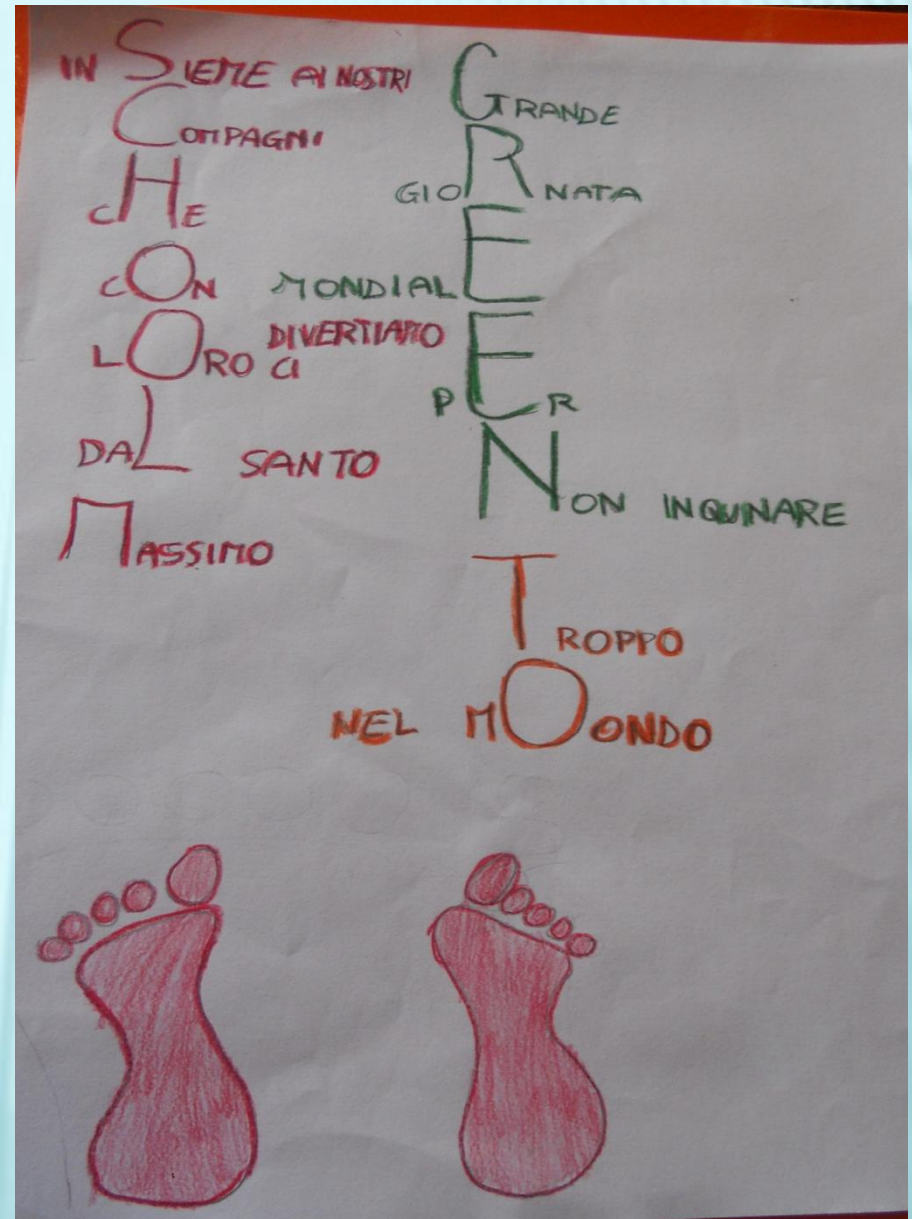 INSIEME AI NOSTRI
COMPAGNI
CHE
CON
LORO CI DIVERTIAMO
DAL SANTO
MASSIMO
GRANDE
GIORNATA
MONDIALE
PER
NON INQUINARE
TROPPO
NEL MOONDO